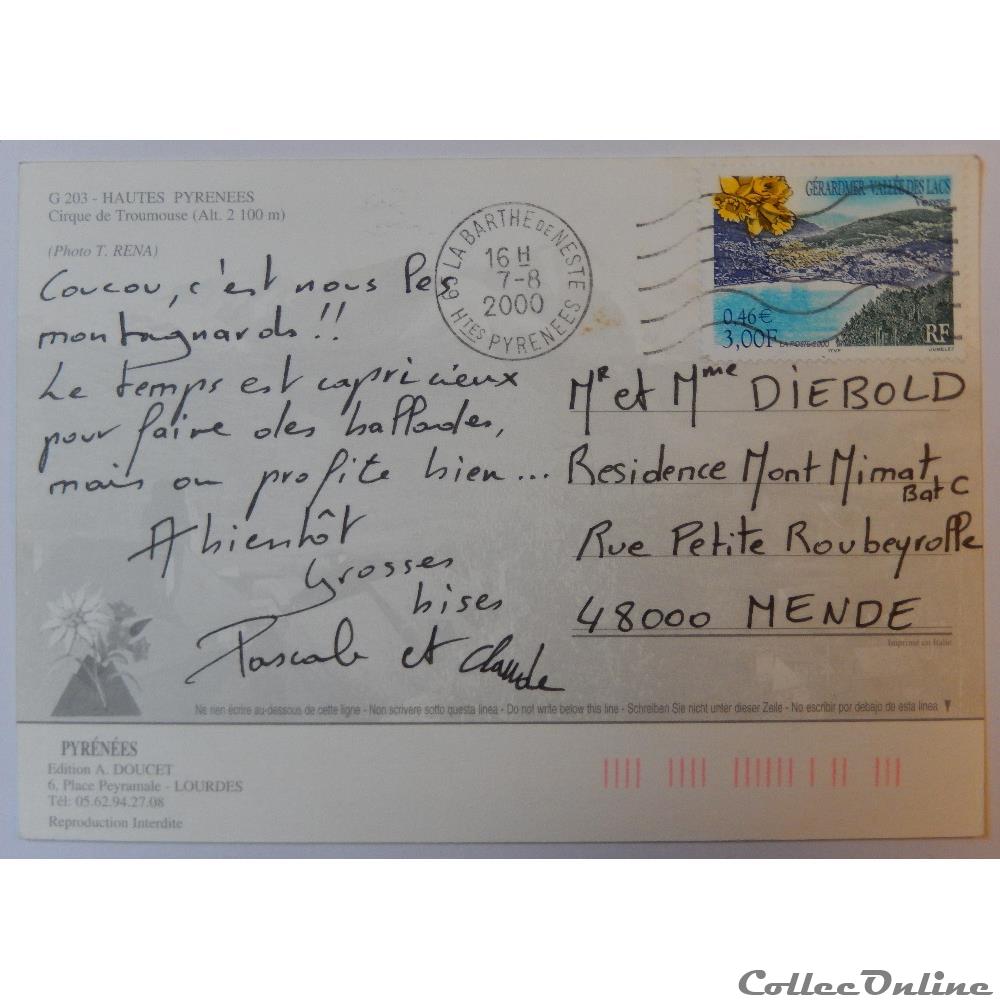 G 203 - HAUTES PYRENEES
Cirque de Troumouse (Alt. 2 100 m)
(Photo T. RENA)
Coucou, c'est nous les
montagnards!!
Le temps est capricieux
pour faire des ballades,
mais on profite bien...
A bientôt
Grosses
bises
Pascale et Claude
65 LA BARTHE DE NESTE
16 H
7-8
2000
HTES PYRENEES
GÉRARDMER - VALLÉE DES LACS
Vosges
0,46€
3,00F
LA POSTE 2000
RF
JUMELET
Mr et Mme DIEBOLD
Residence Mont Mimat
Bat C
Rue Petite Roubeyrolle
48000 MENDE
Imprimé en Italie
Ne rien écrire au-dessous de cette ligne - Non scrivere sotto questa linea - Do not write below this line - Schreiben Sie nicht unter dieser Zeile - No escribir por debajo de esta linea
PYRÉNÉES
Edition A. DOUCET
6, Place Peyramale - LOURDES
Tél: 05.62.94.27.08
Reproduction Interdite
CollecOnline